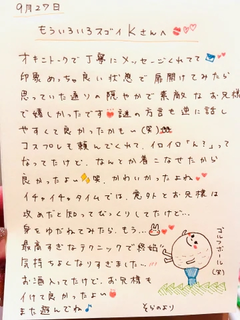 9月27日
もういろいろスゴイKさんへ
オキニトークで丁寧にメッセージくれてて
印象めっちゃ良い状態で扉開けてみたら
思っていた通りの穏やかで素敵なお兄様
で嬉しかったです 謎の方言も逆に話し
やすくて良かったかも〜(笑)
コスプレも頼んでくれて、イロイロ「ん?」って
なってたけど、なんとか着こなせたから
良かったよ〜 笑、かわいかったよね
イチャイチャタイムでは、意外とお兄様は
攻めだと知ってびっくりしてたけど…
身をゆだねてみたら、もう…
最高すぎなテクニックで終始
気持ちよくなりすぎました…
お酒入ってたけど、お兄様も
イけて良かったよ〜
また遊んでね♪
そらのより